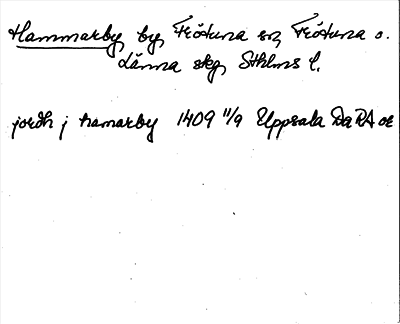 Hammarby by, Frötuna sn, Frötuna o.
Länna skg, Sthlms l.
jordh j hamarby 1409 11/9 Uppsala Da RA or